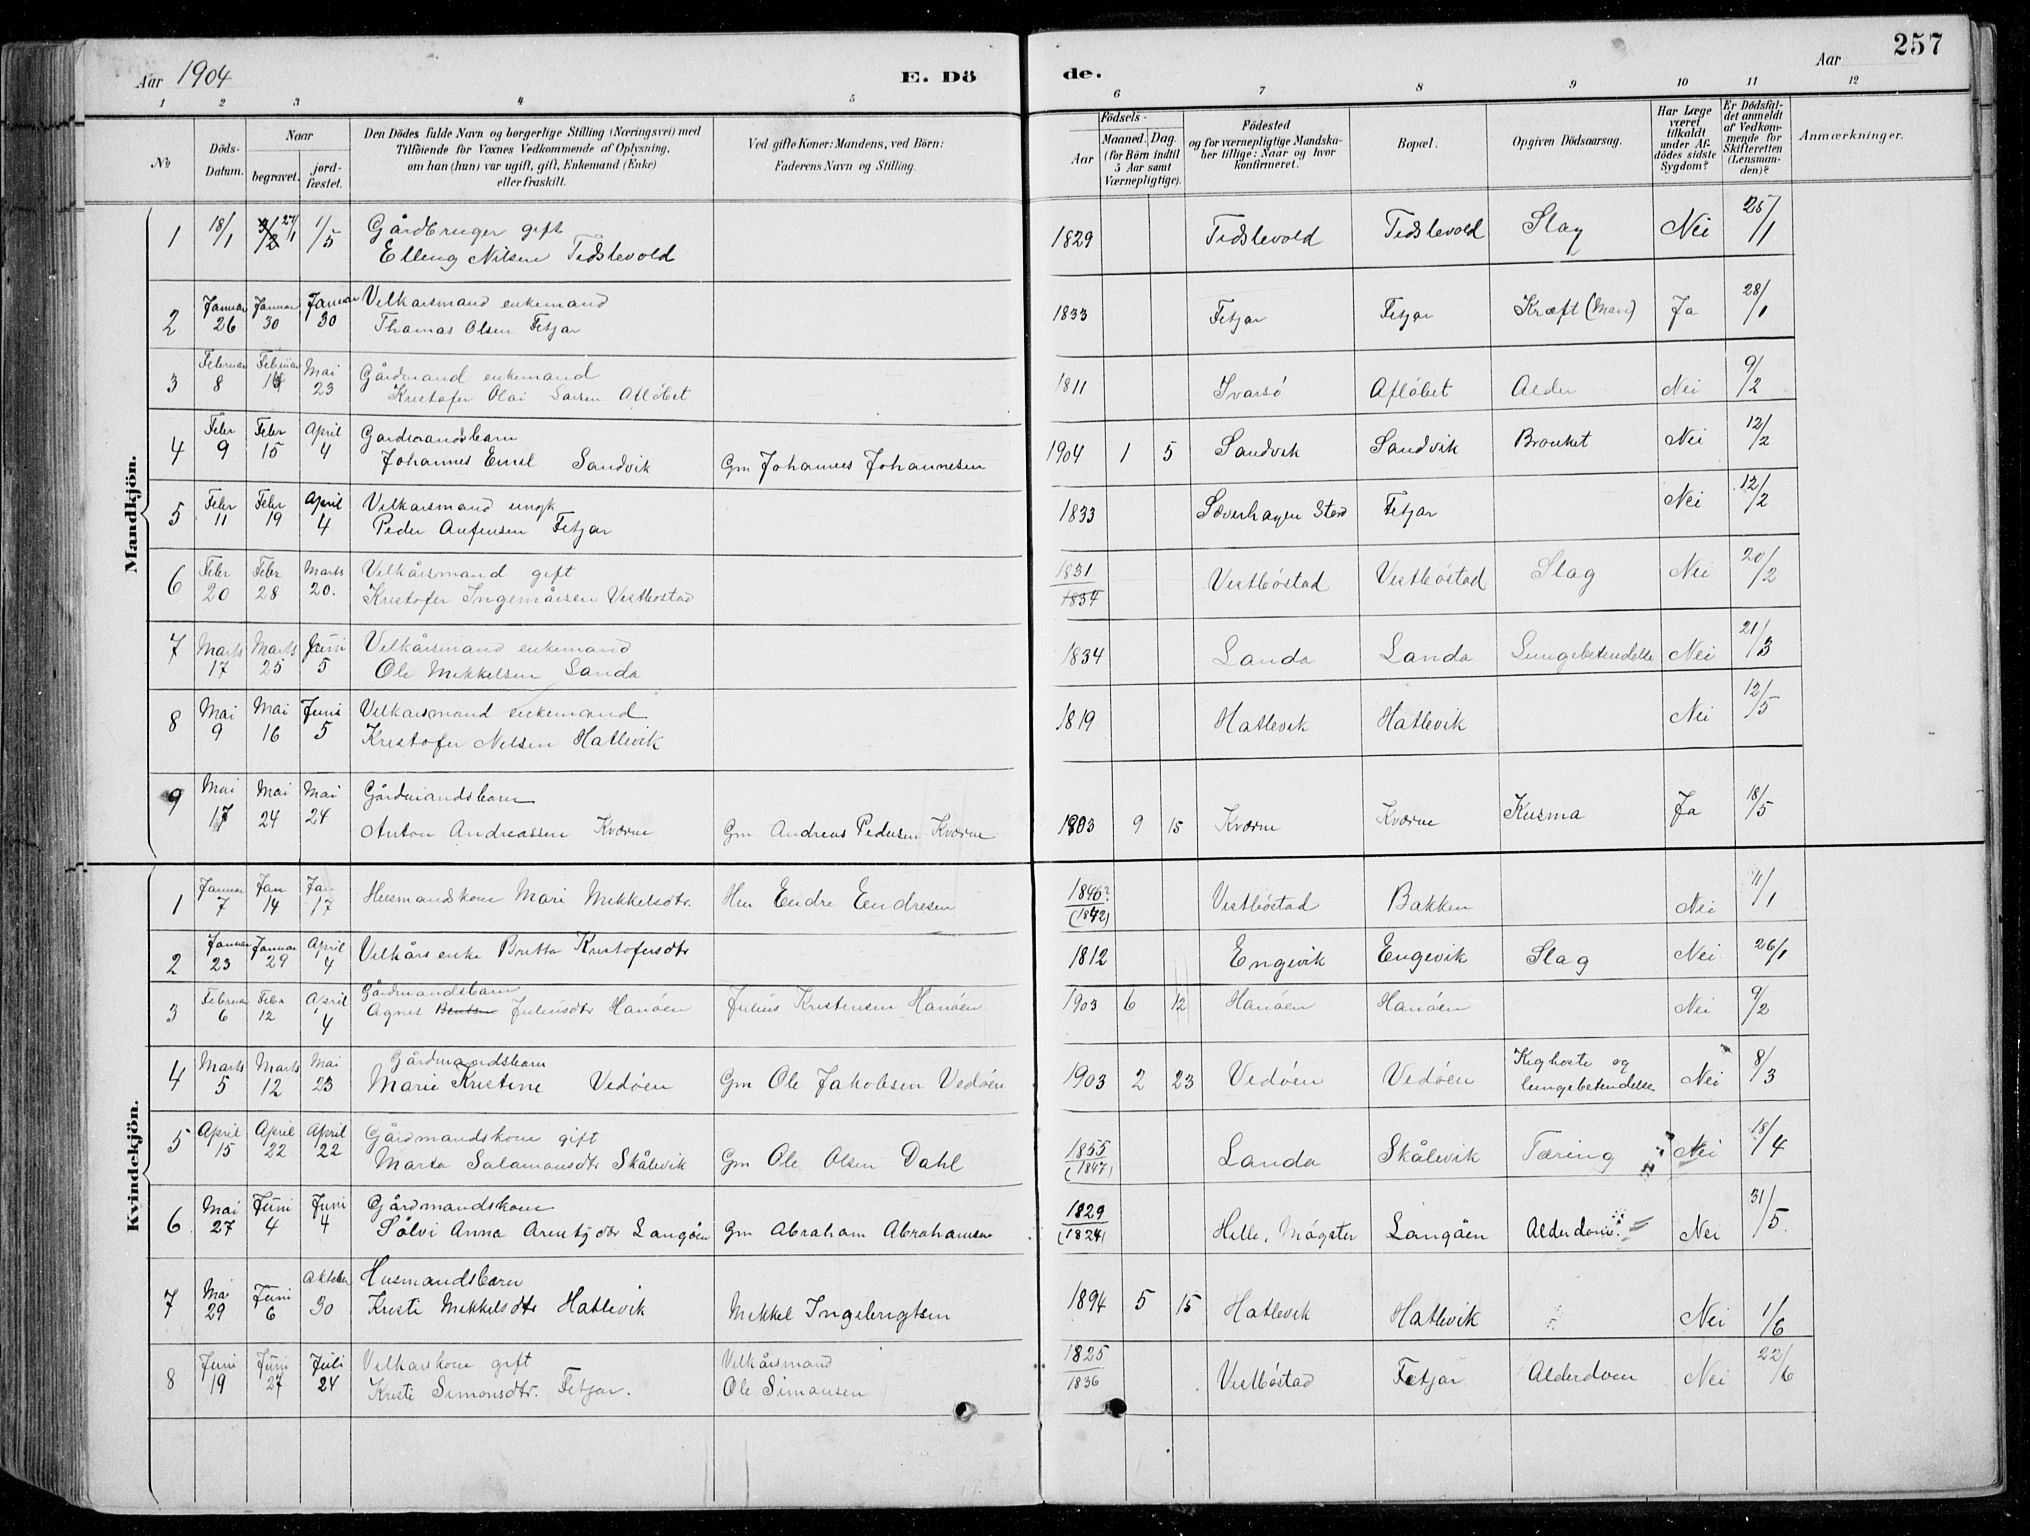 Aar 1904
E. Dö
de.
Aar
257
1 2 3 4 5 6 7 8 9 10 11 12
No
Döds-Datum.
Naar
begravet.
jord-fæstet.
Den Dödes fulde Navn og borgerlige Stilling (Næringsvei) med
Tilföiende for Voxnes Vedkommende af Oplysning,
om han (hun) var ugift, gift, Enkemand (Enke)
eller fraskilt.
Ved gifte Koner: Mandens, ved Börn:
Faderens Navn og Stilling.
Födsels-
Aar
Maaned. Dag.
(for Börn indtil
5 Aar samt
Værnepligtige).
Födested
og for værnepligtige Mandska-
ber tillige: Naar og hvor
konfirmeret.
Bopæl.
Opgiven Dödsaarsag.
Har Læge
været
tilkaldt
under Af-
dödes sidste
Sygdom?
Er Dödsfal-
det anmeldt
af Vedkom-
mende for
Skifteretten
(Lensman-
den)?
Anmærkninger.
Mandkjön.
1 18/1 3/2 27/1 1/5 Gårdbruger gift
Elling Nilsen Tidslevold 1829 Tidslevold Tidslevold Slag Nei 25/1
2 Januar 26 Januar 30 Januar 30 Vilkarsmand enkemand
Thomas Olsen Fitjar 1833 Fitjar Fitjar Kræft (Mave) Ja 28/1
3 Februar 8 Februar 14 Mai 23 Gårdmand enkemand
Kristofer Olai Larsen Afløbet 1811 Ivarsö Afløbet Alder Nei 9/2
4 Febr 9 Febr 15 April 4 Gardmandsbarn
Johannes Emil Sandvik Gm Johannes Johannesen 1904 1 5 Sandvik Sandvik Bronket Nei 12/2
5 Febr 11 Febr 19 April 4 Vilkarsmand ungk
Peder Anfinsen Fitjar 1833 Sæverhagen Stord Fitjar Nei 12/2
6 Febr 20 Febr 28 Marts 20. Vilkårsmand gift
Kristofer Ingemårsen Vestbostad 1831/1834 Vestböstad Vestböstad Slag Nei 20/2
7 Marts 17 Marts 25 Juni 5 Vilkårsmand enkemand
Ole Mikkelsen Landa 1834 Landa Landa Lungebetendelse Nei 21/3
8 Mai 9 Mai 16 Juni 5 Vilkarsmand enkemand
Kristofer Nilsen Hatlevik 1819 Hatlevik Hatlevik Nei 12/5
9 Mai 17 Mai 24 Mai 24 Gårdmandsbarn
Anton Andreassen Kværne Gm Andreas Pedersen Kværne 1903 9 15 Kværne Kværne Kusma Ja 18/5
Kvindekjön.
1 Januar 7 Jan 14 Jan 17 Husmandskone Mari Mikkelsdtr. Hm Endre Endresen 1846? (1842) Vestböstad Bakken Nei 11/1
2 Januar 23 Januar 29 April 4 Vilkårsenke Britta Kristofersdtr 1812 Engevik Engevik Slag Nei 26/1
3 Februar 6 Febr 12 April 4 Gårdmandsbarn
Agnes Juliusdtr Hanöen Julius Kristensen Hanöen 1903 6 12 Hanöen Hanöen Nei 9/2
4 Marts 5 Marts 12 Mai 23 Gårdmandsbarn
Marie Kristine Vedöen Gm Ole Jakobsen Vedöen 1903 2 23 Vedöen Vedöen Kighoste og
lungebetendelse Nei 8/3
5 April 15 April 22 April 22 Gårdmandskone gift
Marta Salamonsdtr Skålevik Gm Ole Olsen Dahl 1855 (1847) Landa Skålevik Tæring Nei 18/4
6 Mai 27 Juni 4 Juni 4 Gårdmandskone
Sölvi Anna Arentzdtr Langöen Gm Abraham Abrahamsen 1829 (1824) Helle, Mögster Langåen Alderdom Nei 31/5
7 Mai 29 Juni 6 Oktober 30 Husmandsbarn
Kristi Mikkelsdtr Hatlevik Mikkel Ingebrigtsen 1894 5 15 Hatlevik Hatlevik Nei 1/6
8 Juni 19 Juni 27 Juli 24 Vilkarskone gift
Kristi Simonsdtr. Fitjar.
Vilkårsmand
Ole Simonsen 1825/1836 Vestböstad Fitjar Alderdom Nei 22/6